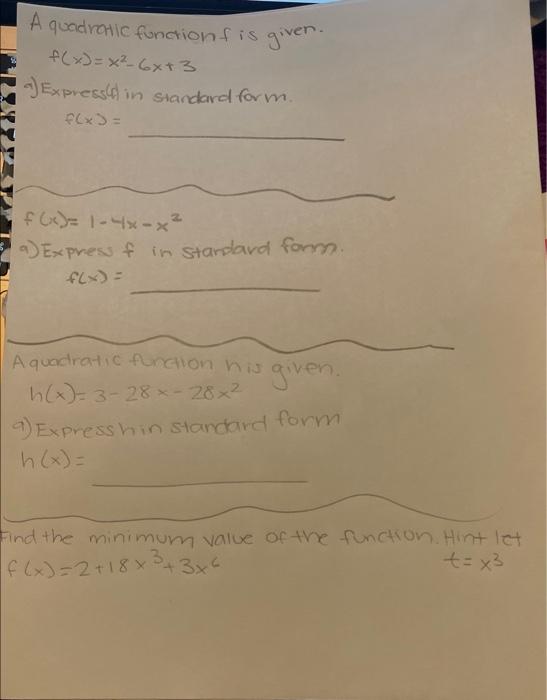 A quadratic function f is given.
f(x) = x² - 6x + 3
a) Express (f) in standard form.
f(x) =
f(x) = 1 - 4x - x²
a) Express f in standard form.
f(x) =
A quadratic function h is given.
h(x) = 3 - 28x - 28x²
a) Express h in standard form
h(x) =
Find the minimum value of the function. Hint let
f(x) = 2 + 18x³ + 3x⁶ t = x³